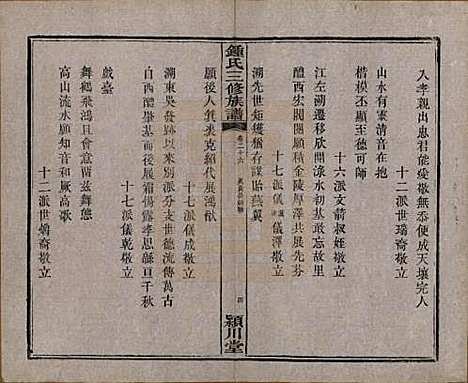 入孝親出忠君能愛敬無忝便成天壤完人
十二派世璠裔敬立
山水有靈清音在抱
楷模不遠至德可師
十六派文蔚叔姪敬立
江左溯遷移欣開淥水初基敢忘故里
醴西宏閥閱願積金陵厚澤共展先芬
十七派儀澤敬立
溯先世矩矱猶存謀貽燕翼
願後人箕裘克紹代展鴻猷
十七派儀成敬立
溯東吳發跡以來別派分支世德流傳萬古
自西醴肇基而後展霜惕露孝思緜亘千秋
十七派儀乾敬立
戲臺
舞鶴飛鴻且會意爾茲舞態
高山流水願知音和厥高歌
十二派世璠裔敬立
鍾氏三修族譜
卷二十六
四
潁川堂